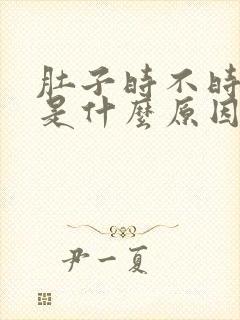 肚子時不時
是什麼原因
尹一夏